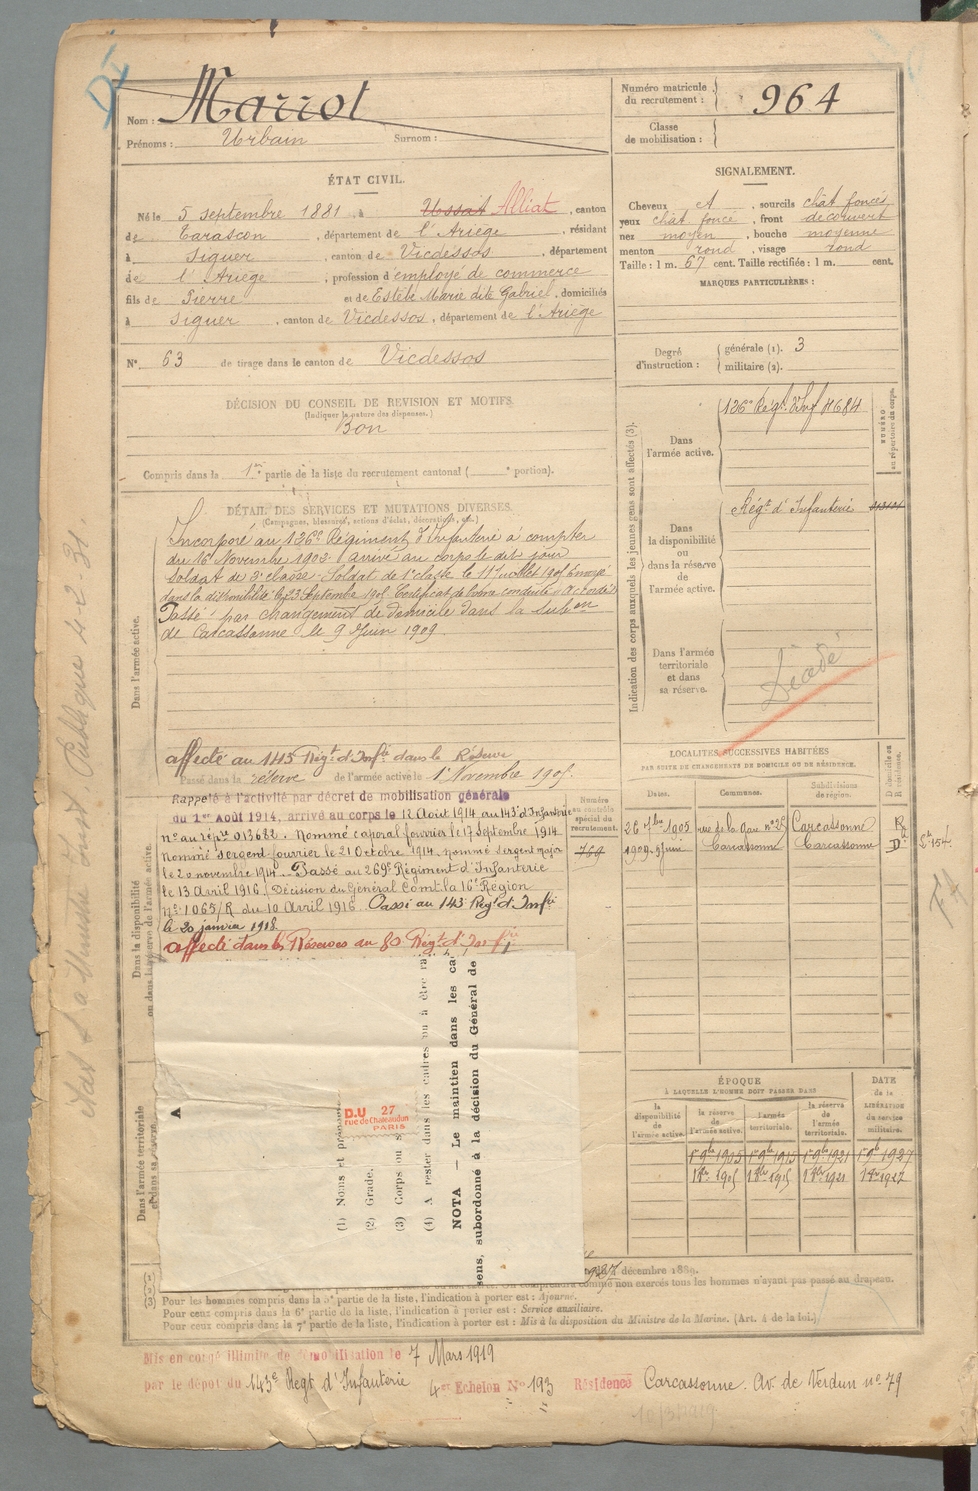 Nom : Marrot
Prénoms : Urbain Surnom :
Numéro matricule du recrutement : 964
Classe de mobilisation :
ÉTAT CIVIL.
Né le 5 septembre 1881, à Ussat Alliat, canton
de Tarascon, département de l'Ariège, résidant
à Siguer, canton de Vicdessos, département
de l'Ariège, profession d'employé de commerce
fils de Pierre et de Estèbe Marie dite Gabriel, domiciliés
à Siguer, canton de Vicdessos, département de l'Ariège
N° 63 de tirage dans le canton de Vicdessos
SIGNALEMENT.
Cheveux et, sourcils chât foncés
yeux chât foncé, front découvert
nez moyen, bouche moyenne
menton rond, visage rond
Taille : 1 m. 67 cent. Taille rectifiée : 1 m. cent.
MARQUES PARTICULIÈRES :
Degré d'instruction : générale (1). 3
militaire (2).
DÉCISION DU CONSEIL DE REVISION ET MOTIFS.
(Indiquer la nature des dispenses.)
Bon
Compris dans la 1re partie de la liste du recrutement cantonal ( e portion).
DÉTAIL DES SERVICES ET MUTATIONS DIVERSES.
(Campagnes, blessures, actions d'éclat, décorations, etc.)
Dans l'armée active.
Incorporé au 126e Régiment d'Infanterie à compter
du 16 Novembre 1902 arrivé au corps le dit jour
soldat de 2e classe. Soldat de 1e classe le 11 Juillet 1905 Envoyé
dans la disponibilité le 23 Septembre 1905 Certificat de bonne conduite
Passé par changement de domicile dans la Subon
de Carcassonne le 9 Juin 1909
affecté au 143 Régt d'Infie dans la Réserve
Passé dans la réserve de l'armée active le 1r Novembre 1905
Dans la disponibilité ou dans la réserve de l'armée active.
Rappelé à l'activité par décret de mobilisation générale
du 1er Août 1914, arrivé au corps le 12 Août 1914 au 143e d'Infanterie
n° au répre 013682. Nommé caporal fourrier le 17 Septembre 1914
Nommé sergent fourrier le 21 Octobre 1914 nommé sergent major
le 20 novembre 1914. Passé au 269e Régiment d'Infanterie
le 13 Avril 1916 (Décision du Général Comt la 16e Région
n° 1065/R du 10 Avril 1916. Passé au 143 Régt d'Infie
le 20 janvier 1918.
affecté dans les Réserves au 80 Régt d'Infie
Numéro au contrôle spécial du recrutement.
769
Indication des corps auxquels les jeunes gens sont affectés (3).
Dans l'armée active.
126e Régt d'Inf
NUMÉRO au répertoire du corps.
Dans la disponibilité ou dans la réserve de l'armée active.
Régt d'Infanterie
Dans l'armée territoriale et dans sa réserve.
Décédé
LOCALITÉS SUCCESSIVES HABITÉES
PAR SUITE DE CHANGEMENTS DE DOMICILE OU DE RÉSIDENCE.
Dates. Communes. Subdivisions de région. D domicile ou R résidence.
26 7bre 1905 rue de la Gare n° 25 Carcassonne R
1909. 9 Juin Carcassonne Carcassonne D
ÉPOQUE
À LAQUELLE L'HOMME DOIT PASSER DANS
la disponibilité de l'armée active. la réserve de l'armée active. l'armée territoriale. la réserve de l'armée territoriale.
DATE de la LIBÉRATION du service militaire.
1r 9bre 1905 1r 9bre 1915 1r 9bre 1921 1r 9b 1927
Dans l'armée territoriale et dans sa réserve.
(1) Noms et prénoms
(2) Grade.
(3) Corps ou s
(4) A rester dans les cadres ou à être ra
NOTA — Le maintien dans les ca
sens, subordonné à la décision du Général de
A
D.U 27
rue de Chateaudun
PARIS
décembre 1889.
comme non exercés tous les hommes n'ayant pas passé au drapeau.
(3) Pour les hommes compris dans la 5e partie de la liste, l'indication à porter est : Ajourné.
Pour ceux compris dans la 6e partie de la liste, l'indication à porter est : Service auxiliaire.
Pour ceux compris dans la 7e partie de la liste, l'indication à porter est : Mis à la disposition du Ministre de la Marine. (Art. 4 de la loi.)
Mis en congé illimité de démobilisation le 7 Mars 1919
par le dépôt du 143e Regt d'Infanterie 4me Echelon N° 193 Résidence Carcassonne. Av. de Verdun n° 79